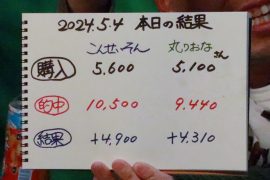 2024.5.4 本日の結果
こんせいそん 丸りおなさん
購入 5,600 5,100
的中 10,500 9,440
結果 +4,900 +4,310